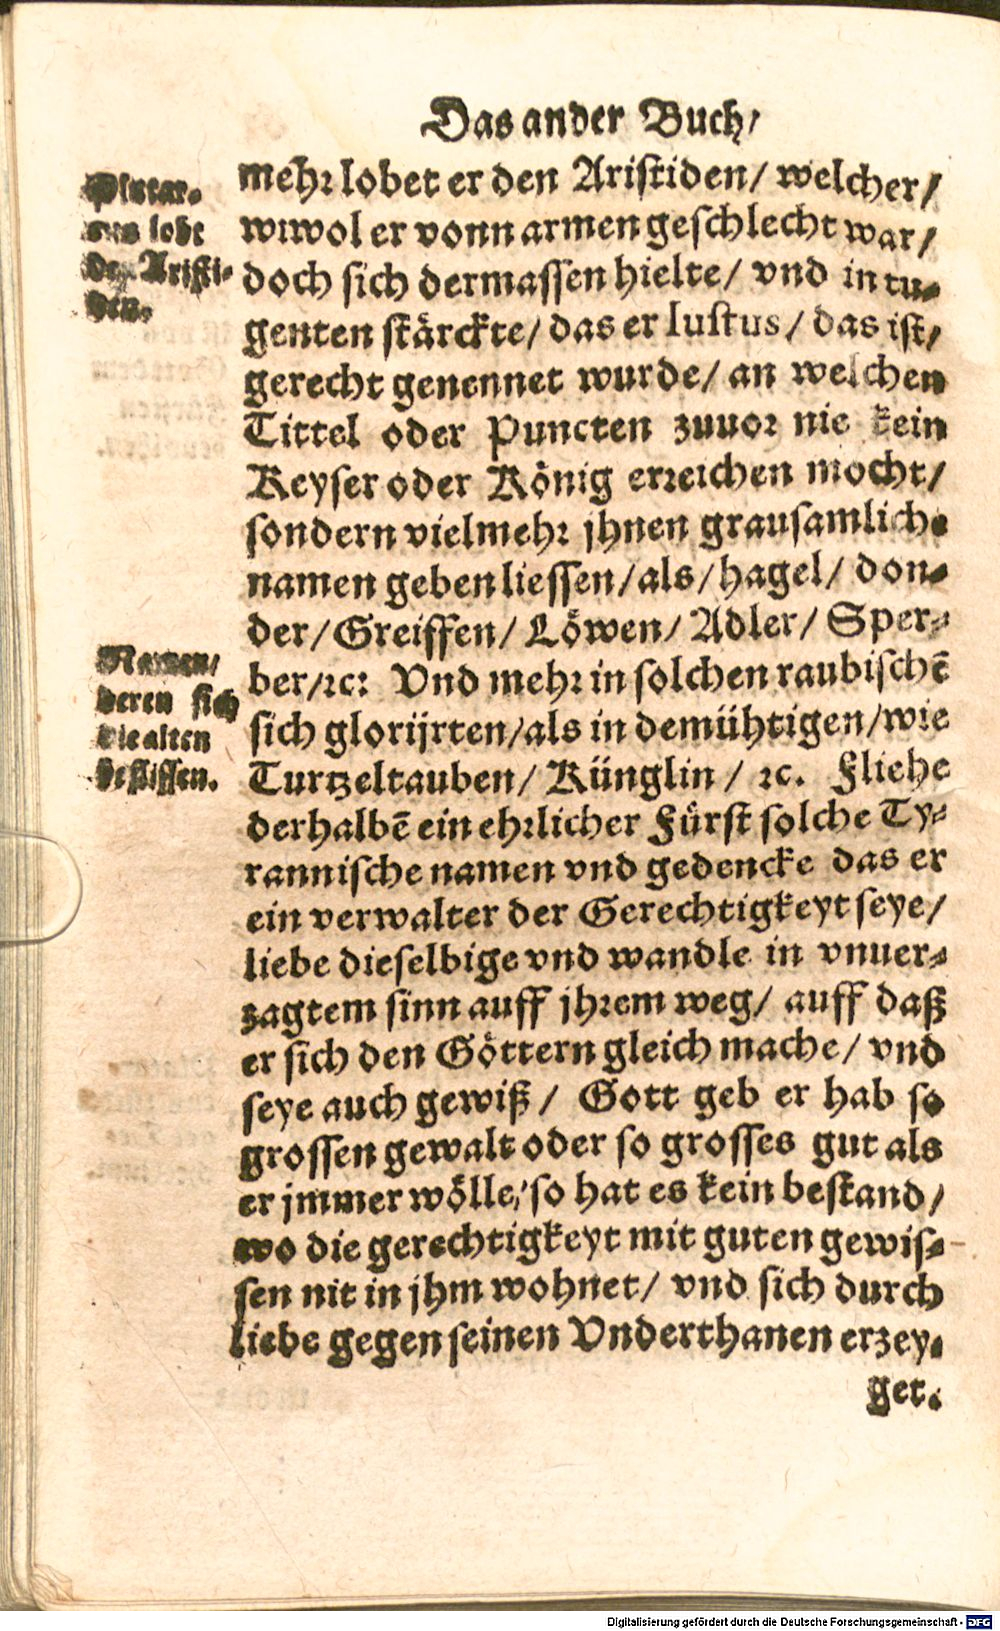 Das ander Buch/
mehr lobet er den Aristiden/ welcher/
wiwol er vonn armen geschlecht war/
doch sich dermassen hielte/ vnd in tu-
genten stärckte/ das er Iustus/ das ist/
gerecht genennet wurde/ an welchen
Tittel oder Puncten zuuor nie kein
Keyser oder König erreichen mocht/
sondern vielmehr jhnen grausamliche
namen geben liessen/als/hagel/ don-
der/Greiffen/ Löwen/ Adler/ Sper-
ber/ꝛc: Vnd mehr in solchen raubischē
sich glorijrten/als in demühtigen/wie
Turtzeltauben/ Künglin / ꝛc. Fliehe
derhalbē ein ehrlicher Fürst solche Ty-
rannische namen vnd gedencke das er
ein verwalter der Gerechtigkeyt seye/
liebe dieselbige vnd wandle in vnuer-
zagtem sinn auff jhrem weg/ auff daß
er sich den Göttern gleich mache/ vnd
seye auch gewiß/ Gott geb er hab so
grossen gewalt oder so grosses gut als
er jmmer wölle/ so hat es kein bestand/
wo die gerechtigkeyt mit guten gewis-
sen nit in jhm wohnet/ vnd sich durch
liebe gegen seinen Vnderthanen erzey-
get.
Plutar-
cus lobt
den Aristi-
den.
Namen/
deren sich
die alten
beflissen.
Digitalisierung gefördert durch die Deutsche Forschungsgemeinschaft - DFG